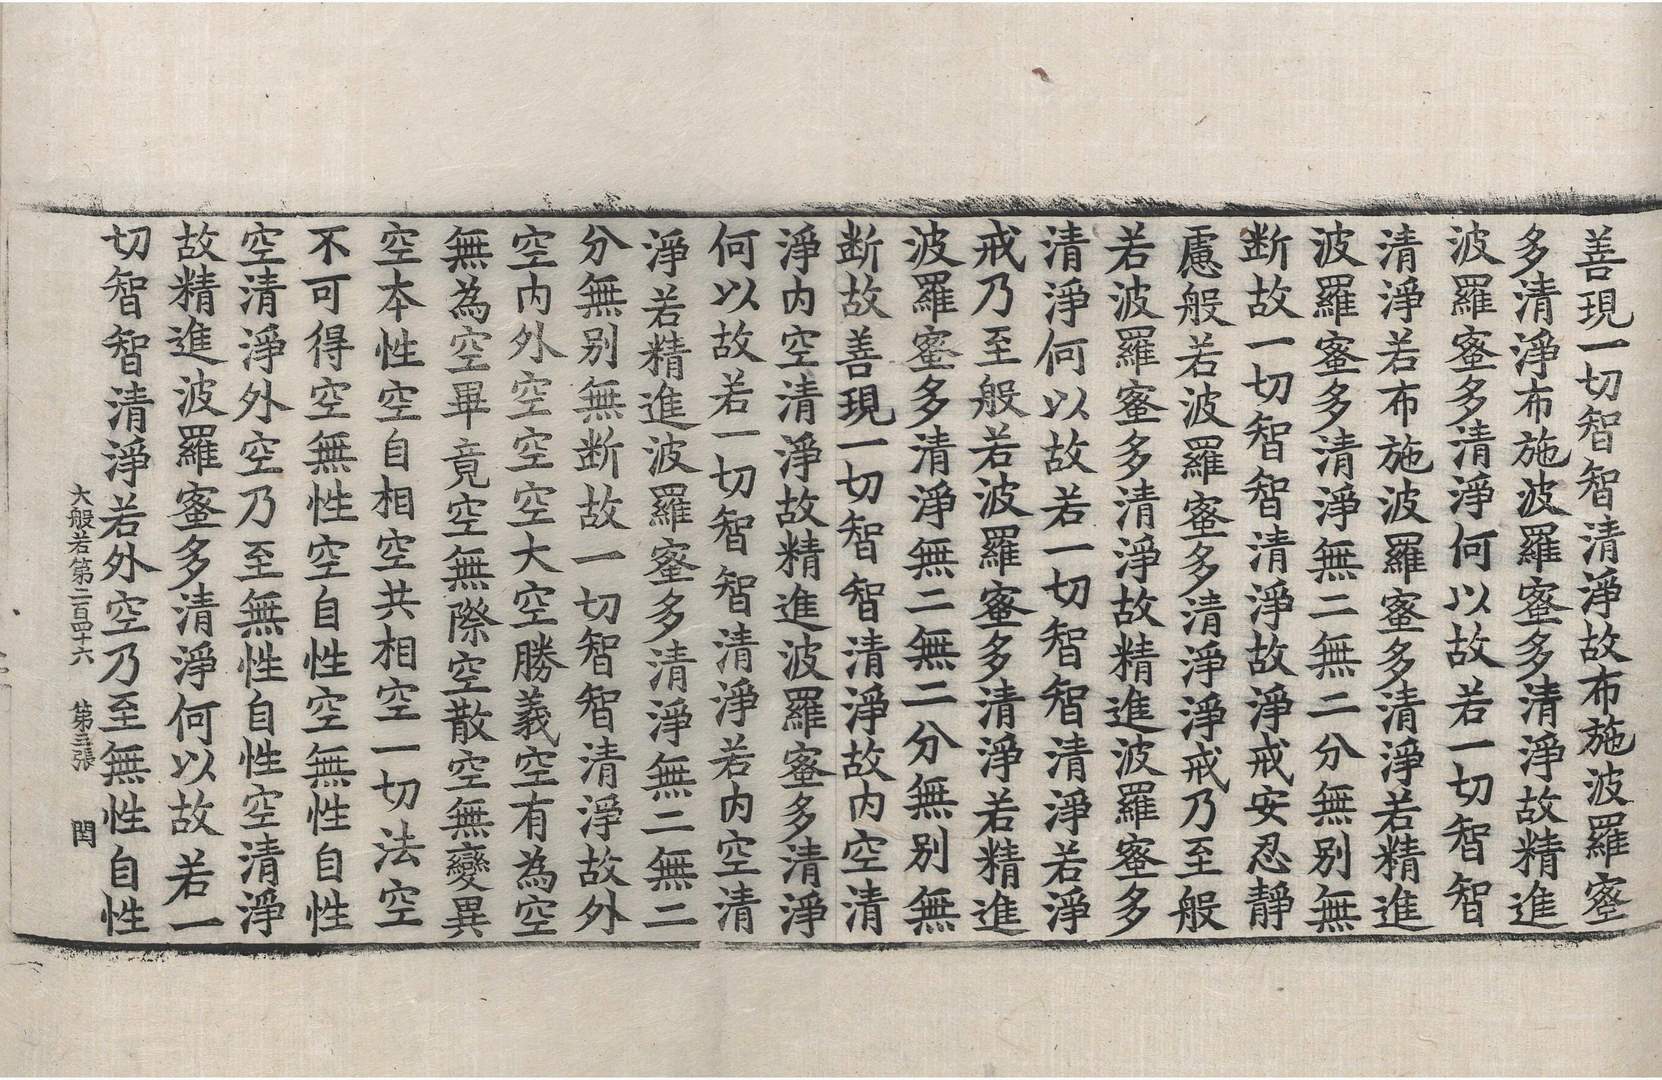 善現一切智智清淨故布施波羅蜜
多清淨布施波羅蜜多清淨故精進
波羅蜜多清淨何以故若一切智智
清淨若布施波羅蜜多清淨若精進
波羅蜜多清淨無二無二分無別無
断故一切智智清淨故淨戒安忍靜
慮般若波羅蜜多清淨淨戒乃至般
若波羅蜜多清淨故精進波羅蜜多
清淨何以故若一切智智清淨若淨
戒乃至般若波羅蜜多清淨若精進
波羅蜜多清淨無二無二分無別無
断故善現一切智智清淨故內空清
淨內空清淨故精進波羅蜜多清淨
何以故若一切智智清淨若內空清
淨若精進波羅蜜多清淨無二無二
分無別無断故一切智智清淨故外
空內外空空空大空勝義空有為空
無為空畢竟空無際空散空無變異
空本性空自相空共相空一切法空
不可得空無性空自性空無性自性
空清淨外空乃至無性自性空清淨
故精進波羅蜜多清淨何以故若一
切智智清淨若外空乃至無性自性
大般若第二百四十六 第三張 閏